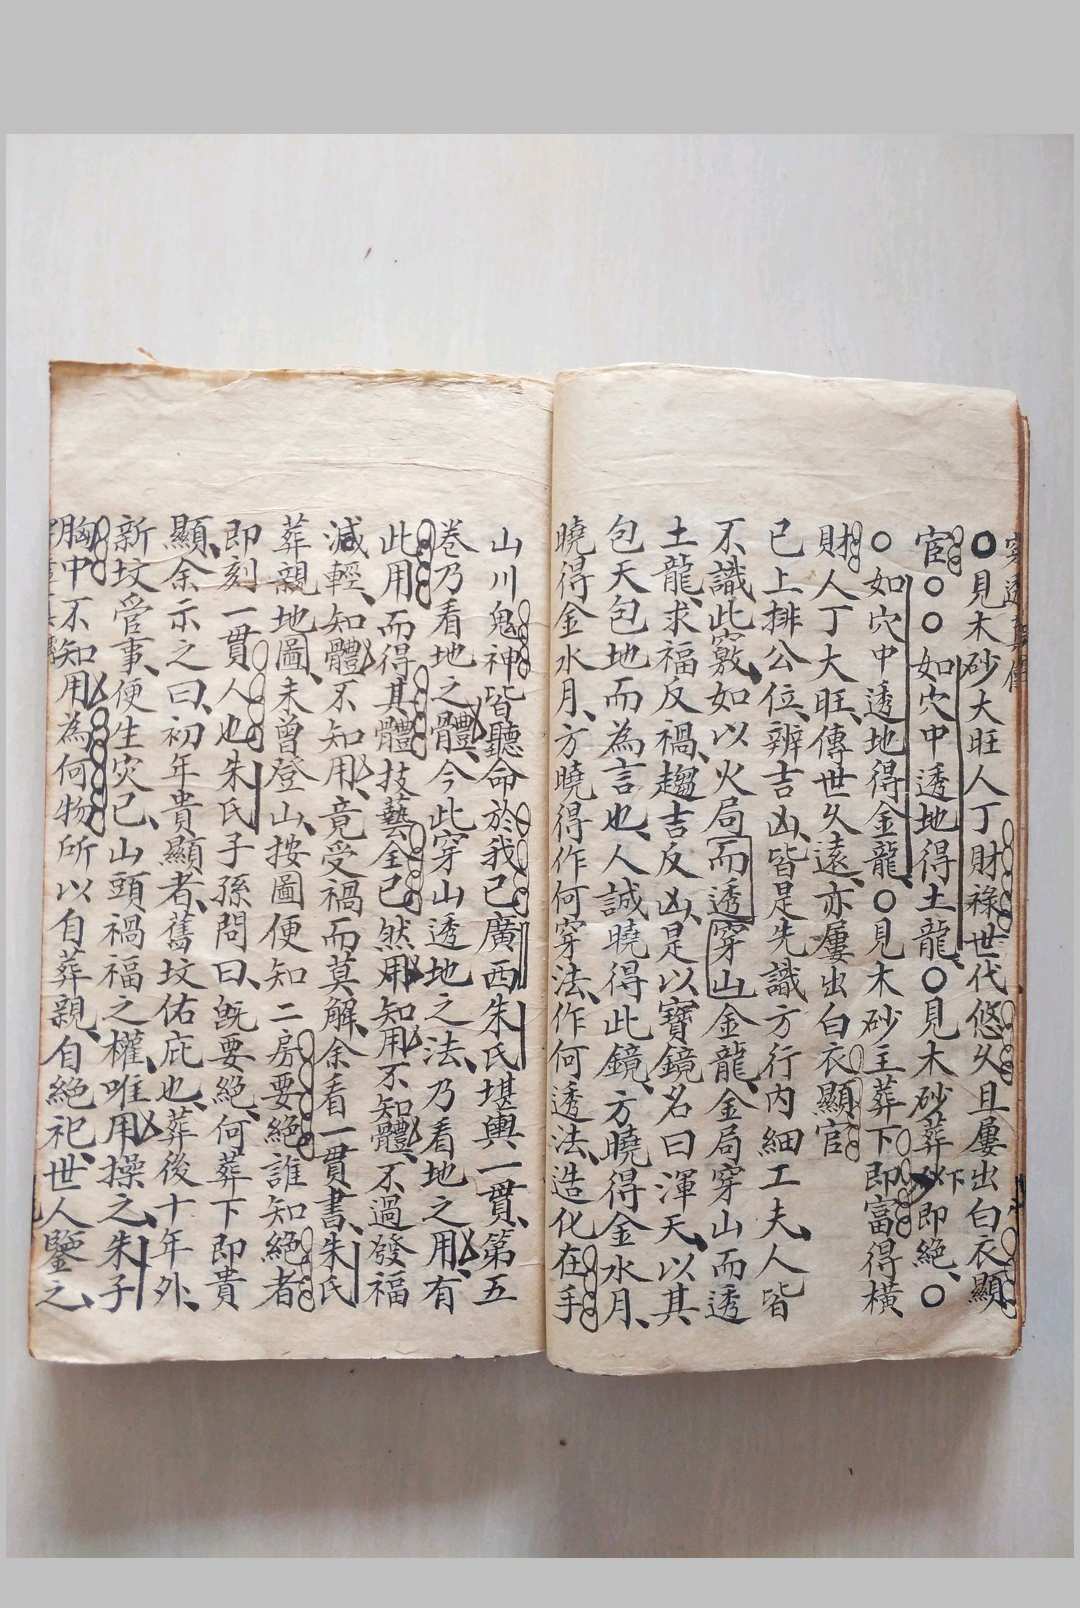 ○見木砂大旺人丁財祿世代悠久且屢出白衣顯
宦○○如穴中透地得土龍○見木砂葬下即絕○
○如穴中透地得金龍○見木砂主葬下即富得橫
財人丁大旺傳世久遠亦屢出白衣顯宦
已上排公位辨吉凶皆是先識方行內細工夫人皆
不識此竅如以火局而透穿山金龍金局穿山而透
土龍求福反禍趨吉反凶是以寶鏡名曰渾天以其
包天包地而為言也人誠曉得此鏡方曉得金水月
曉得金水月方曉得作何穿法作何透法造化在手
山川鬼神皆聽命於我已廣西朱氏堪輿一貫第五
卷乃看地之體今此穿山透地之法乃看地之用有
此用而得其體技藝全已然用知用不知體不過發福
減輕知體不知用竟受禍而莫解余看一貫書朱氏
葬親地圖未曾登山按圖便知二房要絕誰知絕者
即刻一貫人也朱氏子孫問曰既要絕何葬下即貴
顯余示之曰初年貴顯者舊坟佑庇也葬後十年外
新坟管事便生灾已山頭禍福之權唯用操之朱子
胸中不知用為何物所以自葬親自絕祀世人鑒之